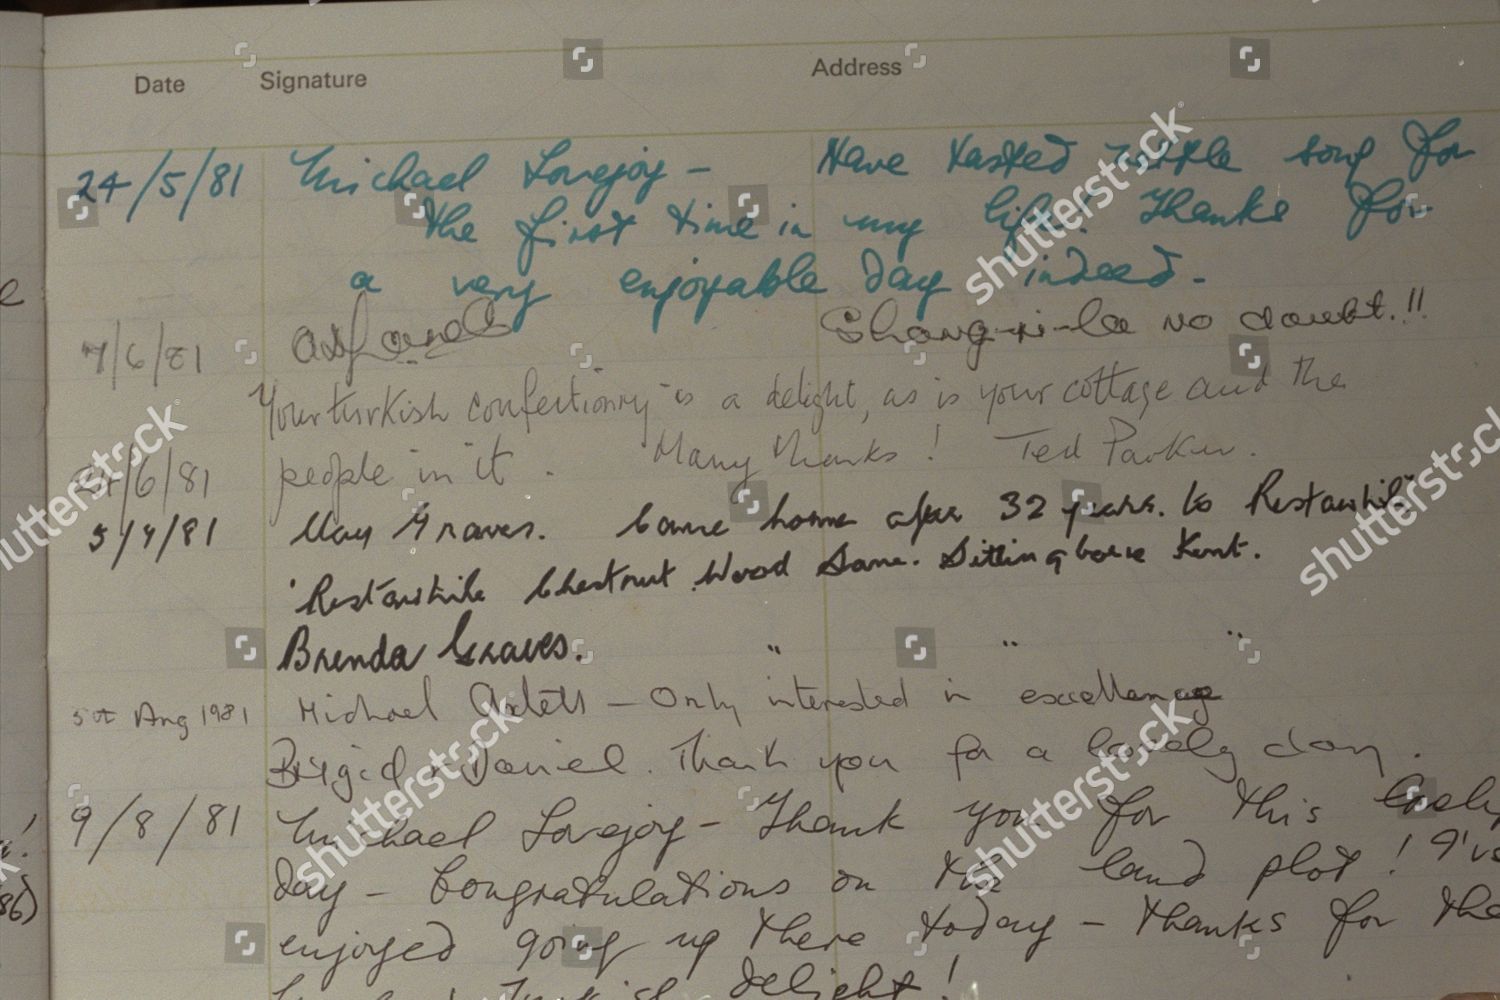 Date Signature Address
24/5/81 Michael Lovejoy - Have tasted nettle song for
the first time in my life! Thanks for
a very enjoyable day indeed -
7/6/81 Shang-ri-la no doubt.!!
Your turkish confectionry is a delight, as is your cottage and the
24/6/81 people in it. Many thanks! Ted Parker.
5/7/81 May Graves. Came home after 32 years. to Restawhile
'Restawhile Chestnut Wood Lane. Sittingbourne Kent.
Brenda Graves. " " "
5th Aug 1981 Michael - Only interested in excellence
Brigid + Daniel. Thank you for a lovely day.
9/8/81 Michael Lovejoy - Thank you for this lovely
day - Congratulations on the land plot! I've
enjoyed going up there today - thanks for the
Turkish delight!
e
!
86)
shutterstock
shutterstock
shutterstock
shutterstock
shutterstock